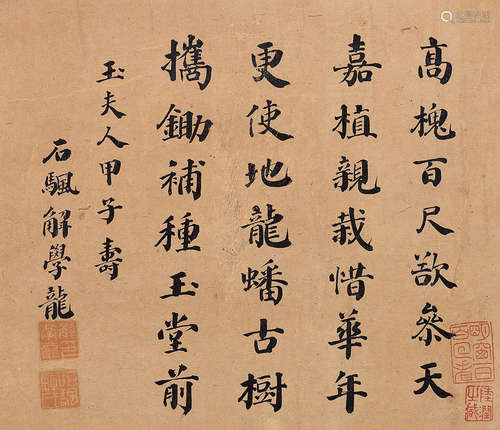 高槐百尺欲參天
嘉植親栽惜華年
更使地龍蟠古樹
攜鋤補種玉堂前
玉夫人甲子壽
石颿解學龍